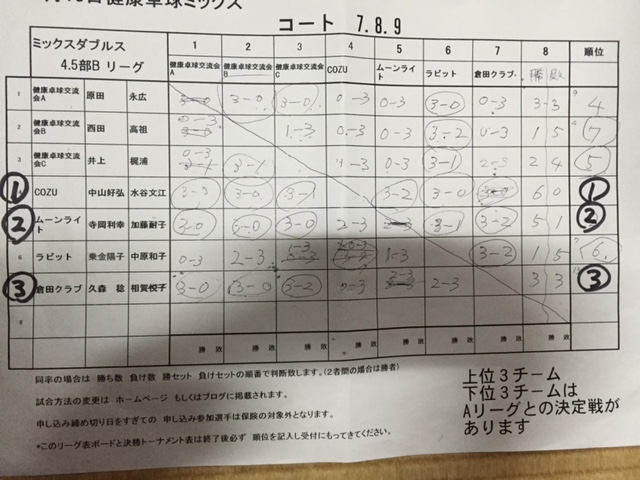 健康卓球ミックス
コート 7.8.9
ミックスダブルス 4.5部B リーグ 1 2 3 4 5 6 7 8 順位
健康卓球交流会A 健康卓球交流会B 健康卓球交流会C COZU ムーンライト ラビット 倉田クラブ 勝 敗
1 健康卓球交流会A 原田 永広 3-0 3-0 0-3 0-3 3-0 0-3 3-3 4
2 健康卓球交流会B 西田 高祖 0-3 1-3 0-3 0-3 3-2 0-3 1 5 7
3 健康卓球交流会C 井上 梶浦 0-3 3-1 0-3 3-1 2-3 2 4 5
① COZU 中山好弘 水谷文江 3-0 3-0 3-1 3-2 3-0 6 0 ①
② ムーンライト 寺岡利幸 加藤耐子 3-0 3-0 3-0 2-3 3-1 3-2 5 1 ②
6 ラビット 乗金陽子 中原和子 0-3 2-3 1-3 0-3 1-3 3-2 1 5 6
③ 倉田クラブ 久森 稔 相賀悦子 3-0 3-0 3-2 2-3 2-3 3 3 ③
8
勝 敗 勝 敗 勝 敗 勝 敗 勝 敗 勝 敗 勝 敗 勝 敗
同率の場合は 勝ち数 負け数 勝セット 負けセットの順番で判断致します。(2者間の場合は勝者)
試合方法の変更は ホームページ もしくはブログに掲載されます。
申し込み締め切り日をすぎての 申し込み参加選手は保険の対象外となります。
*このリーグ表ボードと決勝トーナメント表は終了後必ず 順位を記入し受付にもってきてください。
上位3チーム
下位3チームは
Aリーグとの決定戦が
あります